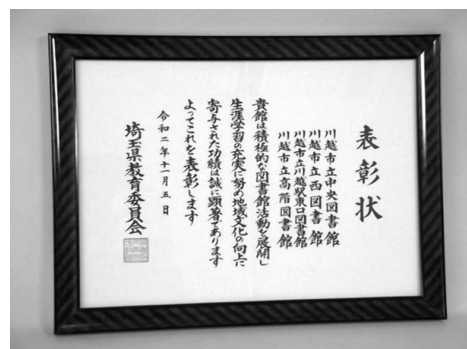 表彰状
川越市立中央図書館
川越市立西図書館
川越市立川越駅東口図書館
川越市立高階図書館
貴館は積極的な図書館活動を展開し
生涯学習の充実に努め地域文化の向上に
寄与された功績は誠に顕著であります
よってこれを表彰します
令和二年十一月五日
埼玉県教育委員会